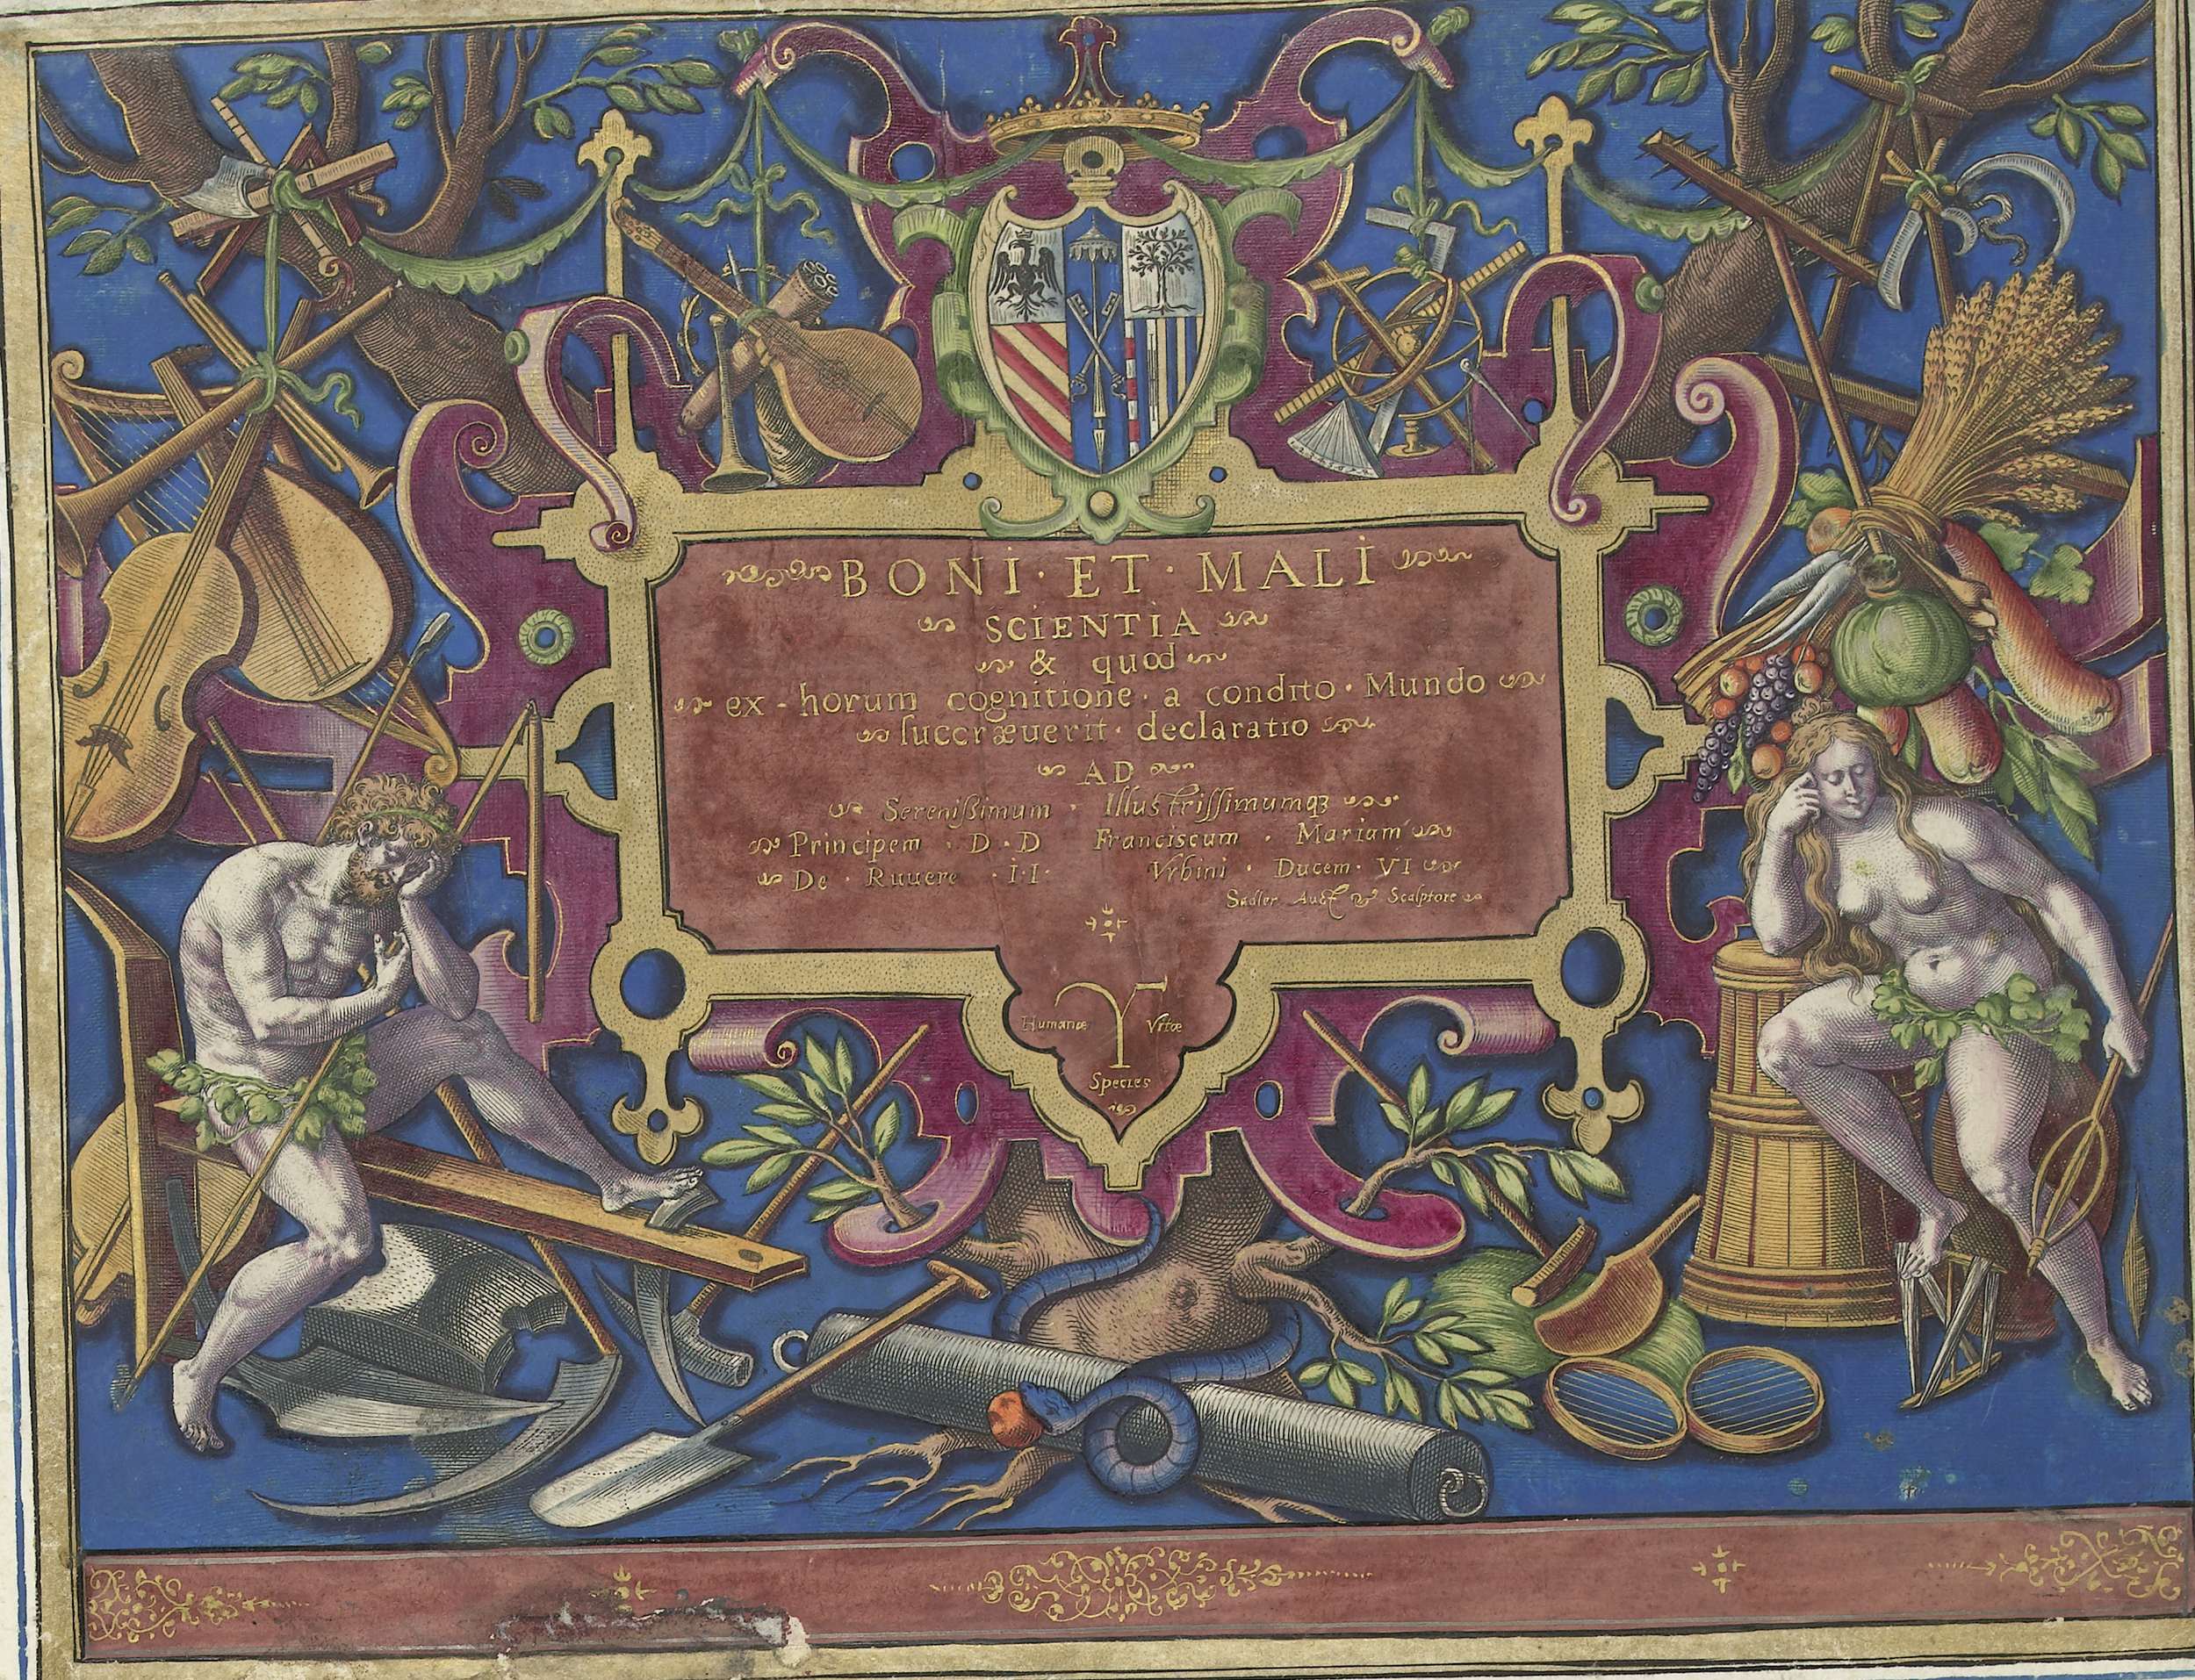 BONI · ET · MALI
SCIENTIA
& quod
ex · horum cognitione · a condito · Mundo
succræuerit · declaratio
AD
Serenißimum · Illustrissimumqȝ
Principem · D · D Franciscum · Mariam
De · Ruuere · I · I · Vrbini · Ducem · VI
Sadler Auct & Sculptore
Humanæ Y Vitæ
Species